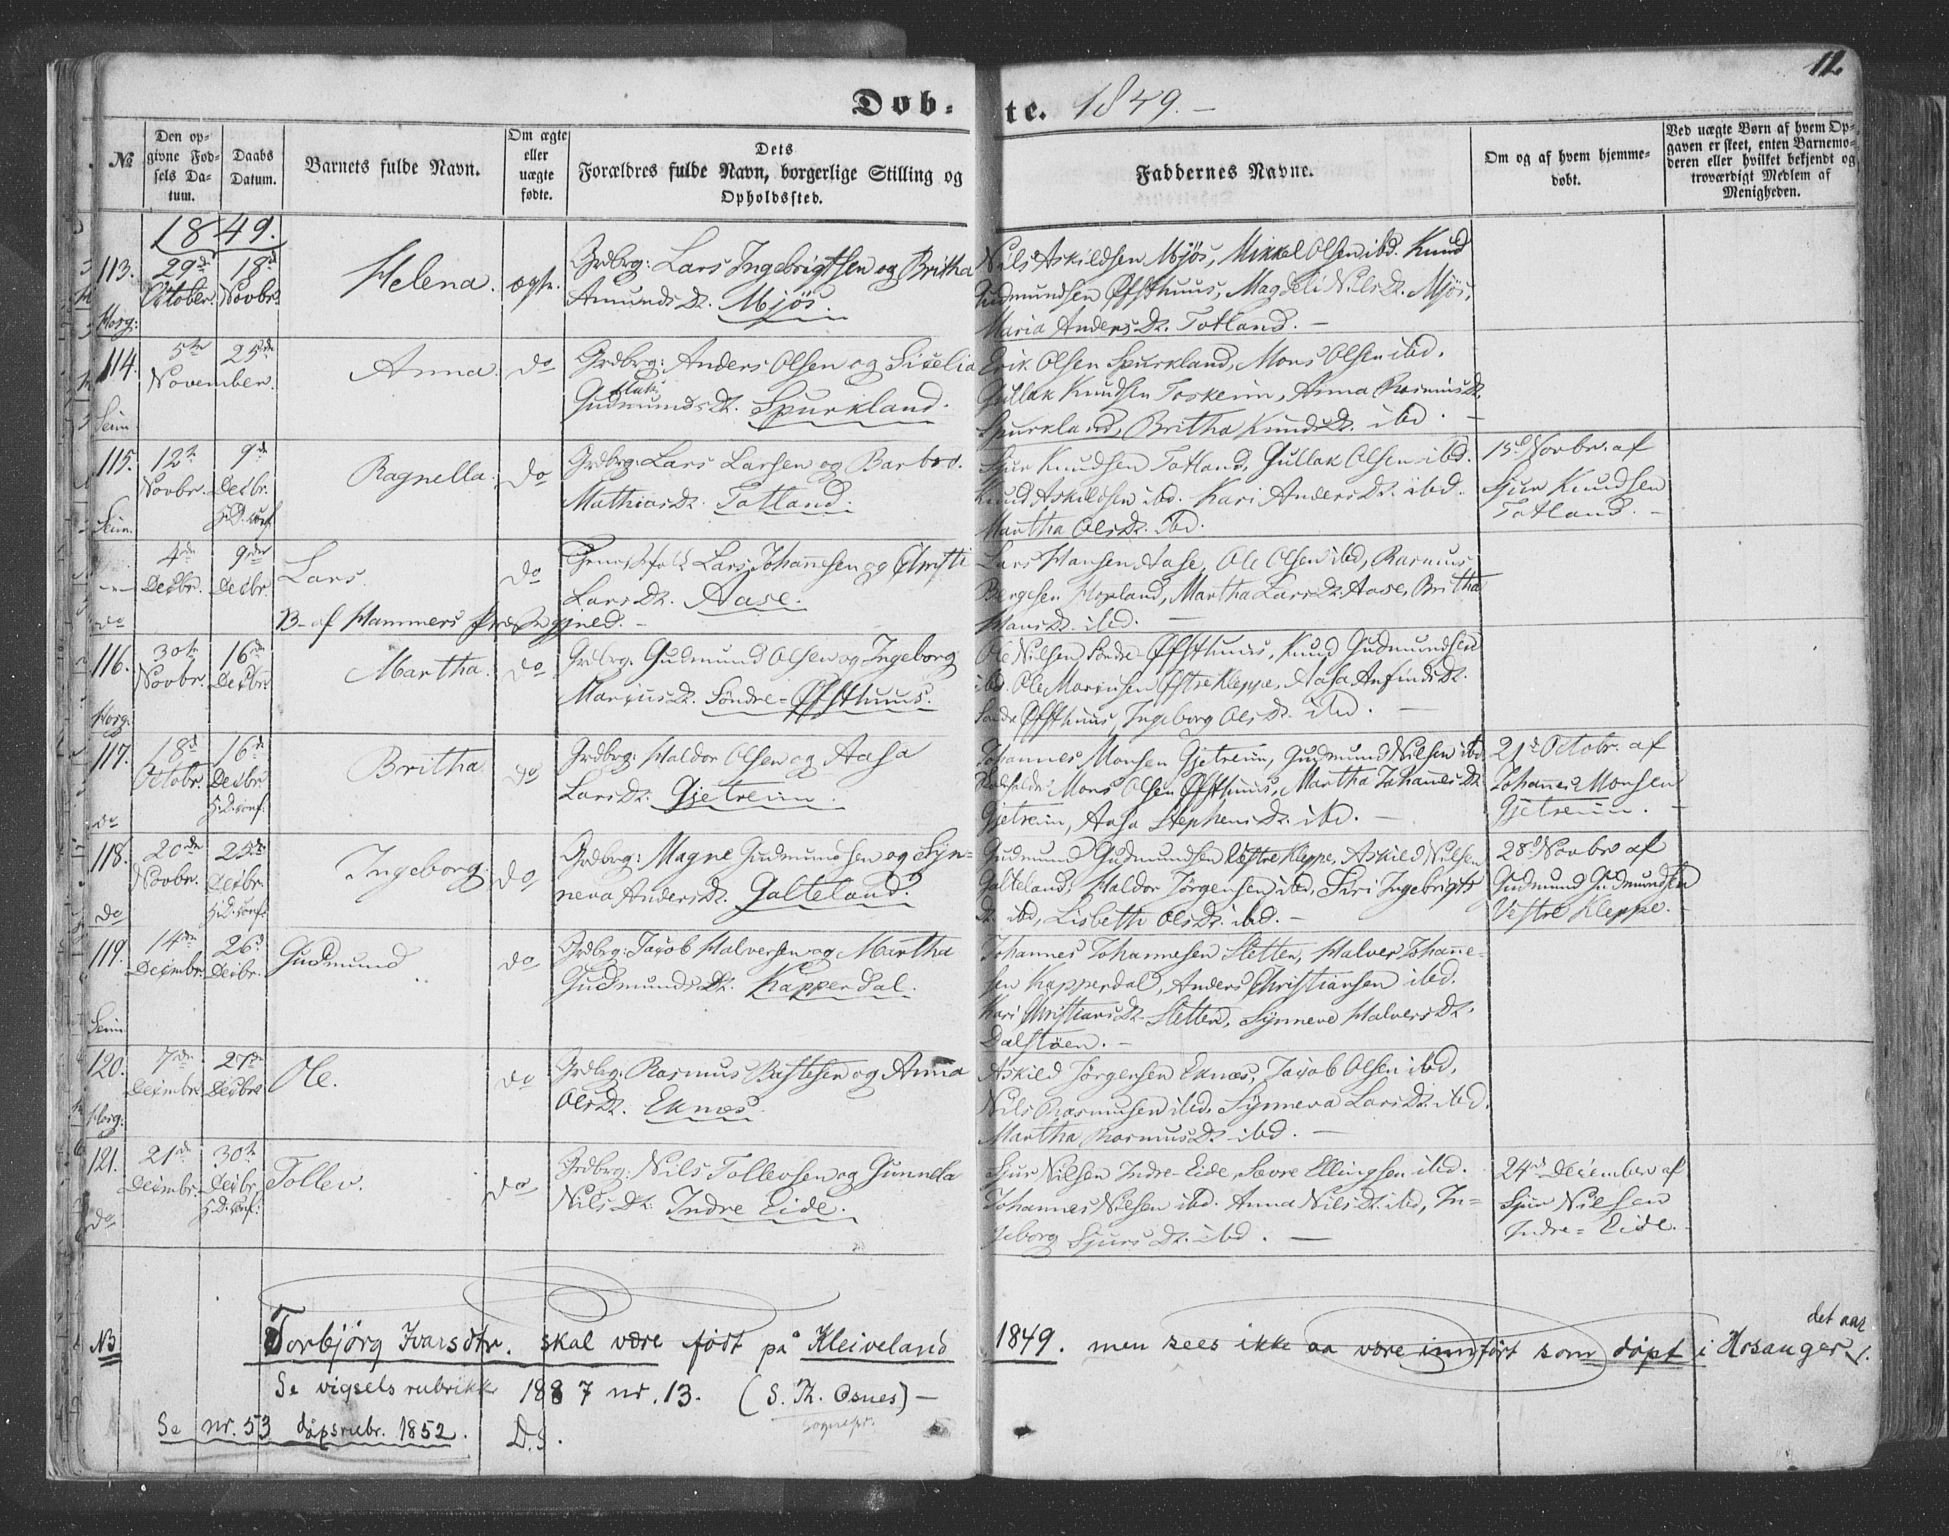 12
Døb-
te. 1849.-
No
Den opgivne Fødsels Datum.
Daabs Datum.
Barnets fulde Navn.
Om ægte eller uægte fødte.
Dets
Forældres fulde Navn, borgerlige Stilling og
Opholdssted.
Faddernes Navne.
Om og af hvem hjemmedøbt.
Ved uægte Børn af hvem Opgaven er skeet, enten Barnemoderen eller hvilket bekjendt og troværdigt Medlem af Menigheden.
1849.
113. 29de October. 18de Novbr. Helena. ægte. Grdbrg: Lars Ingebrigtsen og Britha
Amunds Dr. Mjøs.
Hosg:
Nils Askildsen Mjøs, Mikkel Olsen ibd. Knud
Gudmundsen Øfsthuus, Magdeli Nils Dr. Mjøs,
Maria Anders Dr. Totland. -
114. 5te 25de November. Anna. do Grdbrg: Anders Olsen og Sicelia
Gudmunds Dr. Spurkland.
Seim
Erik Olsen Spurkland, Mons Olsen ibd.
Gullak Knudsen Toskeim, Anna Rasmus Dr.
Spurkland, Britha Knuds Dr. ibd. -
115. 12te Novbr. 9de Decbr. Ragnella. do Grdbrg: Lars Larsen og Barbro.
Mathias Dr. Totland.
Seim.
Sjur Knudsen Totland, Gullak Olsen ibd.
Knud Askildsen ibd. Kari Anders Dr. ibd.
Martha Ols Dr. ibd.
15d Novbr. af
Sjur Knudsen
Totland. -
4de Decbr. 9de Decbr. Lars. do Lars Johannesen og Christi
Lars Dr. Aase.
do B- af Hammers Præstegjeld. -
Lars Hansen Aase, Ole Olsen ibd, Rasmus
Bergesen Hopland, Martha Lars Dr. Aase, Britha
Hans Dr. ibd. -
116. 30te Novbr. 16de Decbr. Martha. do Grdbrg. Gudmund Olsen og Ingeborg
Marcus Dr. Søndre-Øfsthuus.
Hosg:
Ole Nilsen Søndre Øfsthuus, Knud Gudmundsen
ibd. Ole Marcusen Østre Kleppe, Aasa Anfinds Dr.
Søndre Øfsthuus, Ingeborg Ols Dr. ibd. -
117. 18d Octobr. 16de Decbr. H:D: conf. Britha do Grdbrg: Haldor Olsen og Aasa
Lars Dr. Gjetreim.
do
Johannes Monsen Gjetreim, Gudmund Nilsen ibd
Mons Olsen Øfsthuus, Martha Johannes Dr.
Gjetreim, Aasa Stephens Dr. ibd. -
21de Octobr. af
Johannes Monsen
Gjetreim. -
118. 20de Novbr. 25de Decbr. H:D: conf. Ingeborg. do, Grdbrg: Magne Gudmundsen og Synneva Anders Dr. Galteland.
do
Gudmund Gudmundsen Vestre Kleppe, Askild Nilsen
Galteland, Haldor Jørgensen ibd. Siri Ingebrigts
Dr. ibd, Lisbeth Ols Dr. ibd. -
28d Novbr af
Gudmund Gudmundsen
Vestre Kleppe. -
119. 14de Decmbr. 26d Decbr. Gudmund do Grdbrg: Jacob Halversen og Martha
Gudmunds Dr. Kapperdal.
Seim.
Johannes Johannesen Sletten, Halver Johannesen Kapperdal, Anders Christiansen ibd.
Kari Christians Dr. Sletten, Synneve Halvers Dr.
Dalstøen. -
120. 7de Decmbr. 27de Decbr. Ole. do Grdbrg: Rasmus Bastesen og Anna
Ols Dr. Eknæs.
Hosg:
Askild Jørgensen Eknæs, Jacob Olsen ibd,
Nils Rasmusen ibd. Synneva Lars Dr. ibd.
Martha Rasmus Dr. ibd. -
121. 21de Decmbr. 30te Decbr. H:D: conf. Tollev. do Grdbrg: Nils Tollevsen og Gunnela
Nils Dr. Indre Eide.
do
Sjur Nilsen Indre-Eide, Sævre Ellingsen ibd.
Johannes Nilsen ibd. Anna Nils Dr. ibd, Ingeborg Sjurs Dr. ibd. -
24de December af
Sjur Nilsen
Indre-Eide.
NB Torbjörg Ivarsdtr. skal være født på Kleiveland 1849. men sees ikke aa være innført som døpt i Hosanger det aar.
Se vigselsrubrikk 1887 nr. 13. (S. Th. Osnes) -
sognepr.
Se nr. 53 døpsrubr. 1852. D.s.